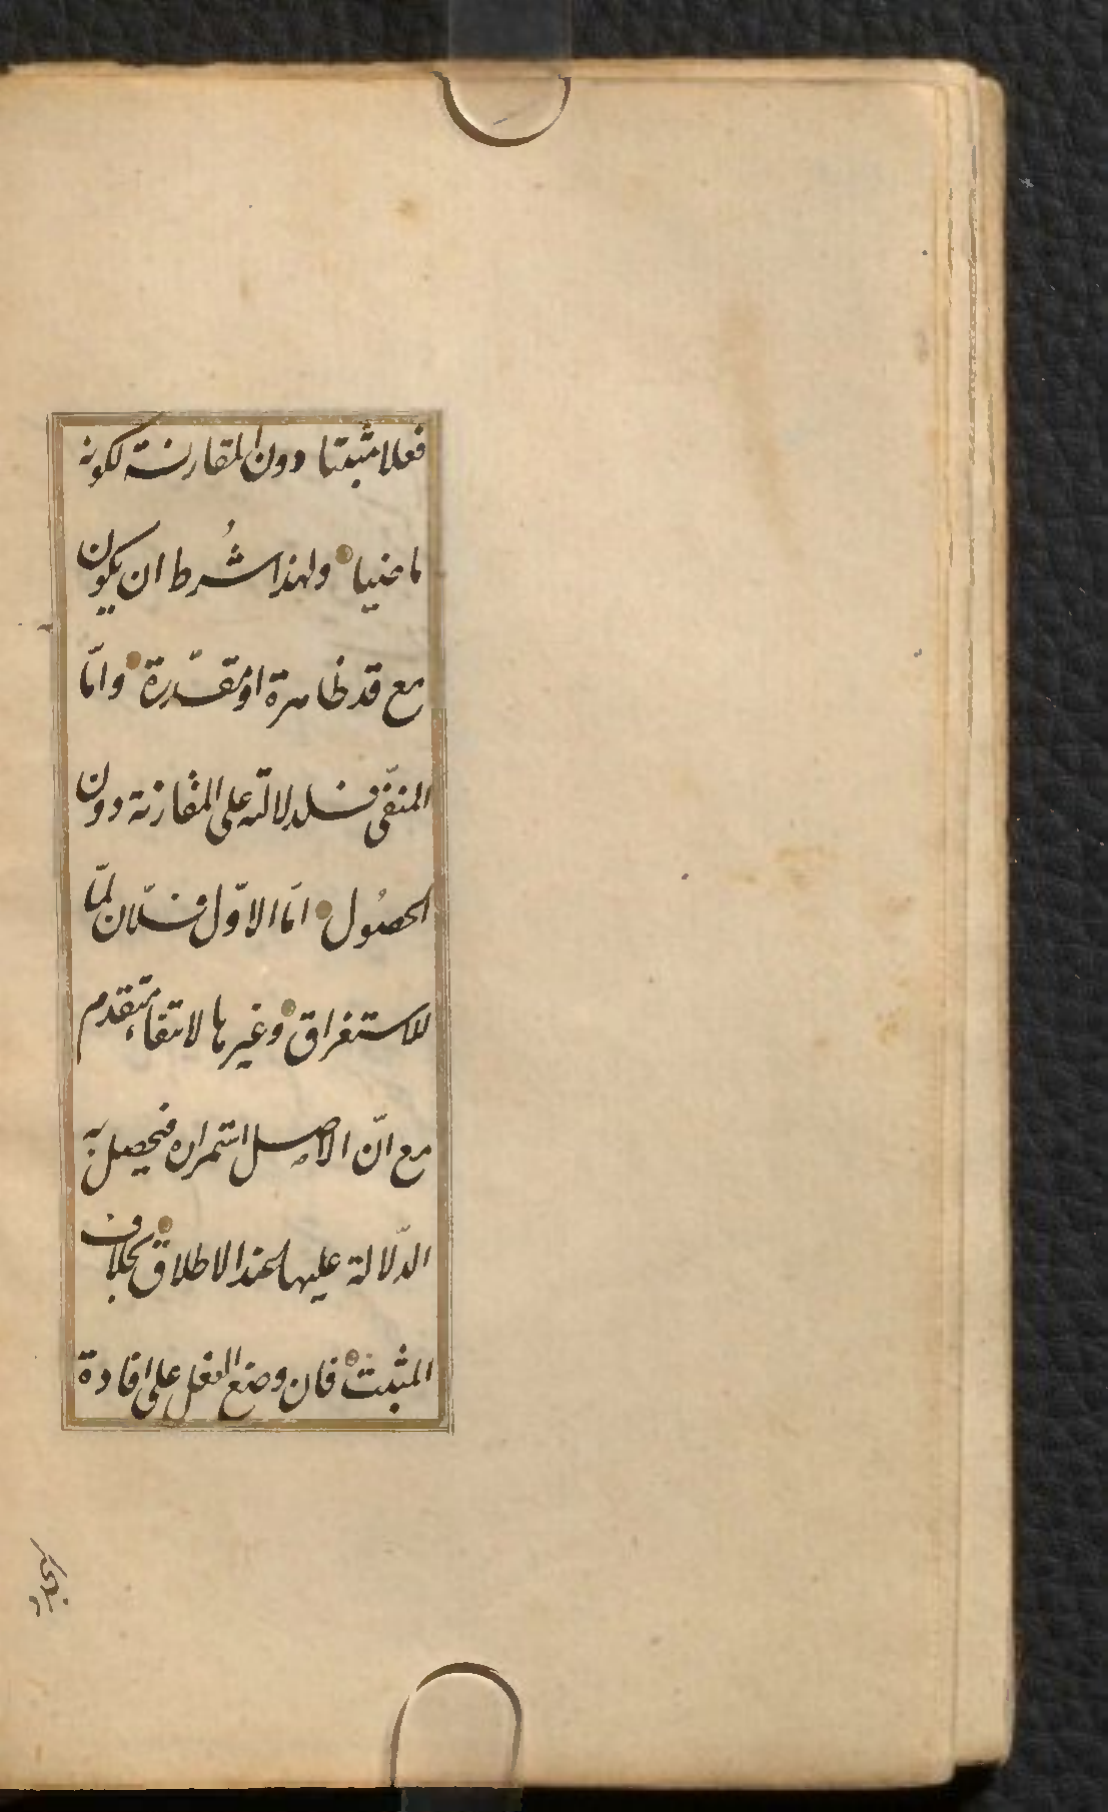 فعلا مثبتا دون المقارنة لكونه
ماضيا ولهذا شُرط ان يكون
مع قد ظاهرة او مقدّرة وامّا
المنفىّ فلدلالته على المقارنة دون
الحصُول امّا الاوّل فلانّ لمّا
للاستغراق وغيرها لانتفاء متقدم
مع انّ الاصل استمراره فيحصل به
الدّلالة عليها عند الاطلاق بخلاف
المثبت فان وضع الفعل على افادة
التجدد